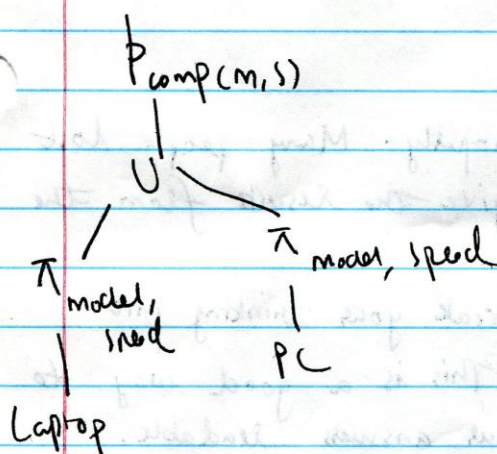 ρcomp(m,s)
U
π model, speed
π model, speed
Laptop
PC